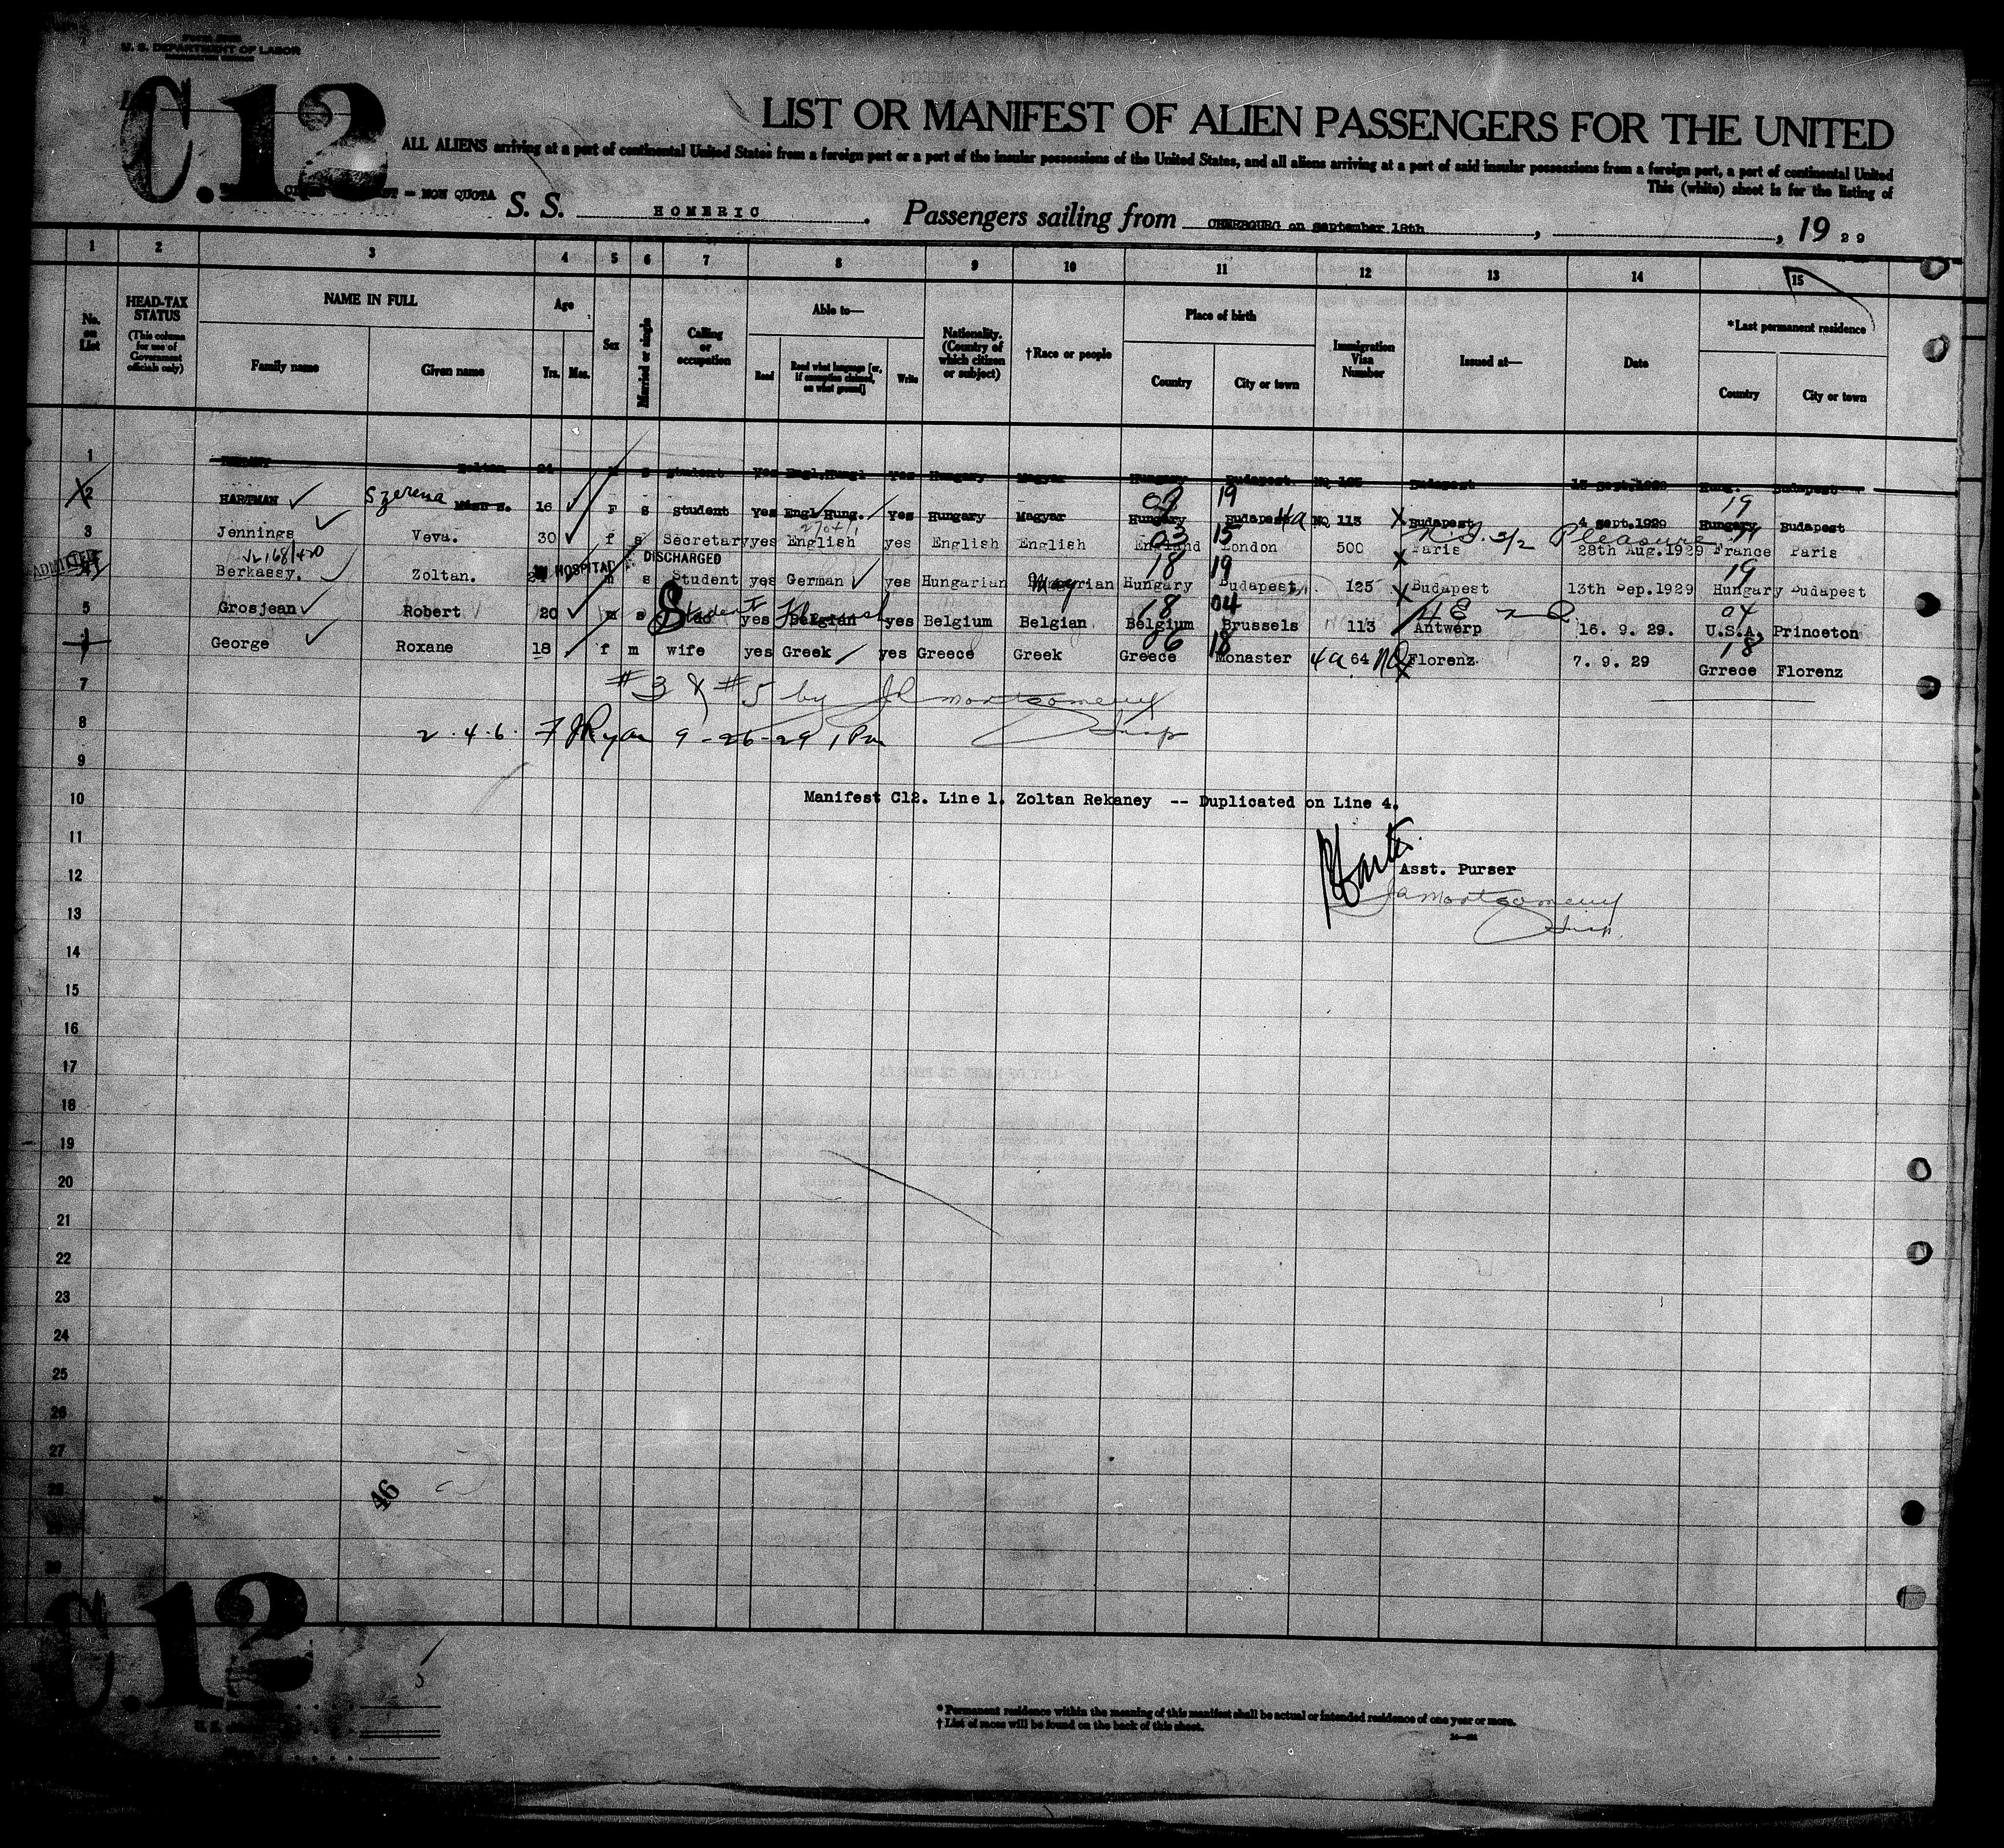 U. S. DEPARTMENT OF LABOR
C.12
LIST OR MANIFEST OF ALIEN PASSENGERS FOR THE UNITED
ALL ALIENS arriving at a port of continental United States from a foreign port or a port of the insular possessions of the United States, and all aliens arriving at a port of said insular possessions from a foreign port, a port of continental United
This (white) sheet is for the listing of
- NON QUOTA S. S. HOMERIC. Passengers sailing from CHERBOURG on september 18th, , 19 29
1 2 3 4 5 6 7 8 9 10 11 12 13 14 15
No. on List
HEAD-TAX STATUS (This column for use of Government officials only)
NAME IN FULL Family name Given name
Age Yrs. Mos.
Sex
Married or single
Calling or occupation
Able to— Read Read what language [or, if exemption claimed, on what ground] Write
Nationality. (Country of which citizen or subject)
†Race or people
Place of birth Country City or town
Immigration Visa Number
Issued at—
Date
*Last permanent residence Country City or town
1 Zoltan 24 M S student yes Engl.Hungl yes Hungary Magyar Hungary Budapest NQ 125 Budapest 13 sept.1929 Hung. Budapest
09 19 19
2 HARTMAN Szerena Miss S. 16 F S student yes Engl Hung. yes Hungary Magyar Hungary Budapest 4a NQ 113 X Budapest 4 sept.1929 Hungary Budapest
03 15 3/2 Pleasure
3 Jennings Veva. 30 f s Secretary yes English yes English English England London 500 Paris 28th Aug.1929 France Paris
ADMITTED IN HOSPITAL DISCHARGED 18 19 X 19
4 Berkassy. Zoltan. 24 m s Student yes German yes Hungarian Magyrian Hungary Budapest 125 X Budapest 13th Sep.1929 Hungary Budapest
Student 18 04 04
5 Grosjean Robert 20 m s do yes Belgian yes Belgium Belgian Belgium Brussels 113 Antwerp 16. 9. 29. U.S.A, Princeton
06 18 18
George Roxane 18 f m wife yes Greek yes Greece Greek Greece Monaster 4a 64 NQ X Florenz 7. 9. 29 Grrece Florenz
7 #3 & #5 by JA Montgomery
Insp
8 2. 4. 6. F J Ryan 9-26-29 1 Pm
9
10 Manifest C12. Line 1. Zoltan Rekaney -- Duplicated on Line 4.
11
12 Asst. Purser
13 JA Montgomery
Insp.
14
15
16
17
18
19
20
21
22
23
24
25
26
27
28
29
30
46
C.12
5
* Permanent residence within the meaning of this manifest shall be actual or intended residence of one year or more.
† List of races will be found on the back of this sheet.